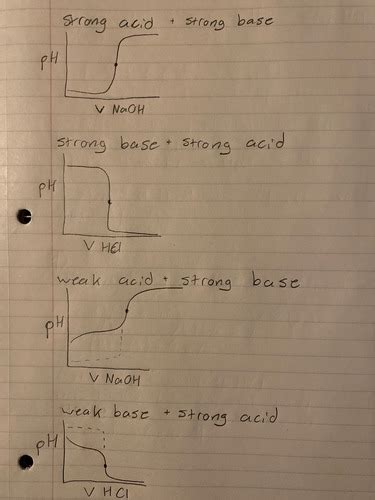 strong acid + strong base
pH
V NaOH
strong base + strong acid
pH
V HCl
weak acid + strong base
pH
V NaOH
weak base + strong acid
pH
V HCl